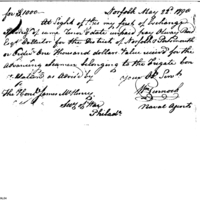 for $1000— Norfolk May 22d 1798
At Sight of this my first of Exchange
second of same Tenor & date unpaid pay Otway Byrd
Esqr Collector for the District of Norfolk & Portsmouth
or Order One thousand Dollars Value received for the
advancing Seamen belonging to the Frigate
as advised by
your Ob St
Wm Pennock
Navy Agent
The Honbl James McHenry
Secy of War
Philada